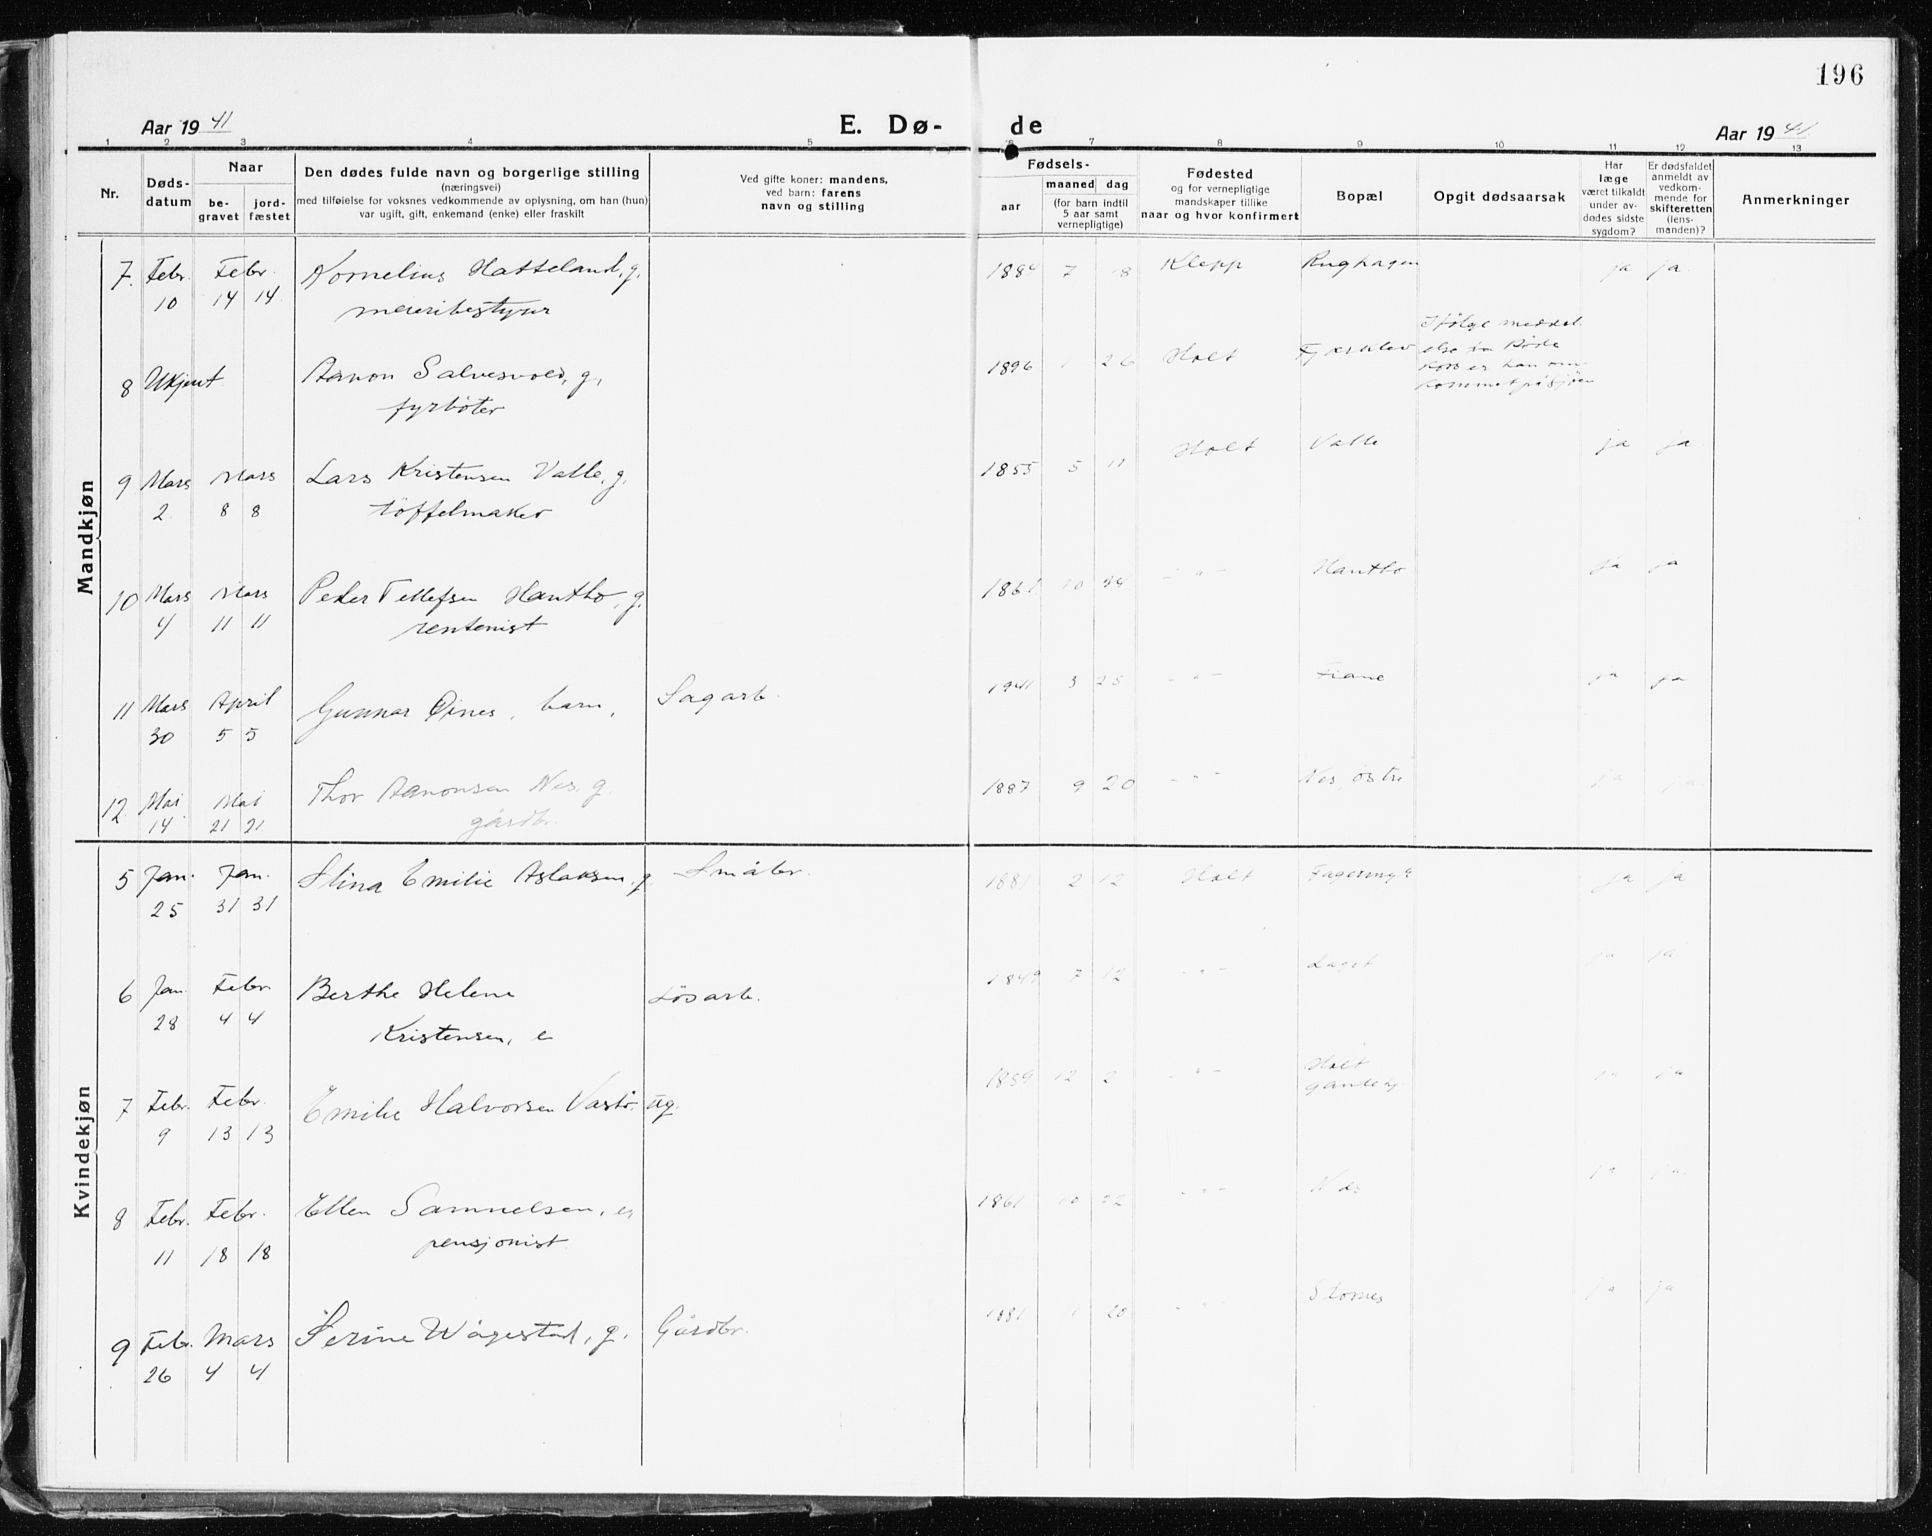 196
Aar 19 41
E. Dø-
de
Aar 19 41
1 2 3 4 5 6 7 8 9 10 11 12 13
Nr.
Døds-
datum
Naar
be-
gravet
jord-
fæstet
Den dødes fulde navn og borgerlige stilling
(næringsvei)
med tilføielse for voksnes vedkommende av oplysning, om han (hun)
var ugift, gift, enkemand (enke) eller fraskilt
Ved gifte koner: mandens,
ved barn: farens
navn og stilling
Fødsels-
aar
maaned dag
(for barn indtil
5 aar samt
vernepligtige)
Fødested
og for vernepligtige
mandskaper tillike
naar og hvor konfirmert
Bopæl
Opgit dødsaarsak
Har
læge
været tilkaldt
under av-
dødes sidste
sygdom?
Er dødsfaldet
anmeldt av
vedkom-
mende for
skifteretten
(lens-
manden)?
Anmerkninger
Mandkjøn
7. Febr. Febr. Kornelius Hatteland, g. 1884 7 18 Klepp Rughagen ja ja
10 14 14 meieribestyrer
8 Ukjent Aanon Salvesvold, g. 1896 1 26 Holt Fjærkleiv
fyrbøter
Ifølge meddel.
else fra Røde
Kors er han om
kommet på sjøen
9 Mars Mars Lars Kristensen Valle, g. 1855 5 11 Holt Valle ja ja
2 8 8 tøffelmaker
10 Mars Mars Peder Tellefsen Hantho, g. 1861 10 - " - Hantho ja ja
4 11 11 rentenist
11 Mars April Gunnar Øines, barn, Sagarb. 1941 3 25 - " - Fiane ja ja
30 5 5
12 Mai Mai Thor Aanonsen Nes, g. 1887 9 20 - " - Nes, østre ja ja
14 21 21 gårdbr.
Kvindekjøn
5 Jan. Jan. Stina Emilie Aslaksen, g. Småbr. 1881 2 12 Holt ja ja
25 31 31
6 Jan. Febr. Berthe Helene Løsarb. 1849 7 12 - " - Laget ja ja
28 4 4 Kristensen, e
7 Febr. Febr. Emilie Halvorsen ug. 1859 12 2 - " - Holt ja ja
9 13 13 gamlehj.
8 Febr. Febr. Ellen Samuelsen, e, 1861 10 22 - " - Nes ja ja
11 18 18 pensjonist
9 Febr. Mars Serine Wågestad, g. Gårdbr. 1881 1 20 - " - ja ja
26 4 4